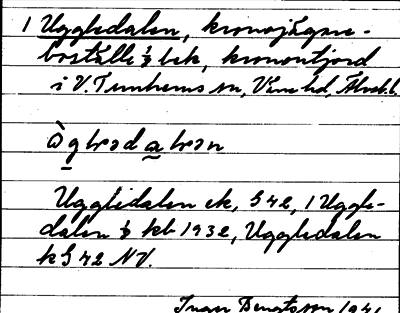 1 Uggledalen, kronojägare-
boställe ⅛ bek, kronontjord
i V. Tunhems sn, Väne hd, Älvsb. l.
Ugglidalen ek, G 42, 1 Uggle-
dalen ⅛ kb 1932, Uggledalen
k G 42 NV.
Ivar Bengtsson 1941